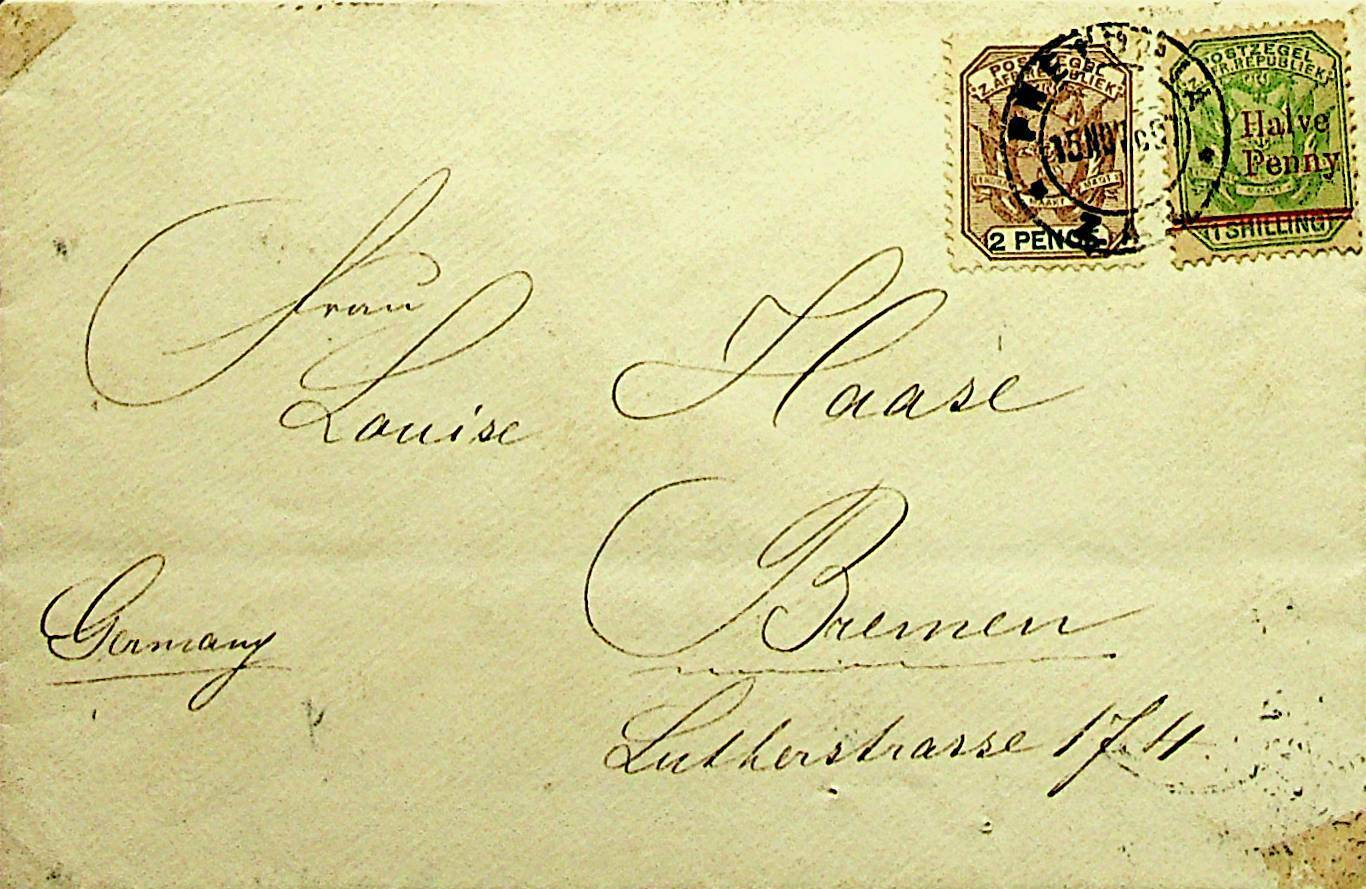 POSTZEGEL
Z.AFR.REPUBLIEK
2 PENCE
POSTZEGEL
Z.AFR.REPUBLIEK
Halve
Penny
1 SHILLING
15 NOV
Frau
Louise Haase
Bremen
Germany
Lutherstrasse 174